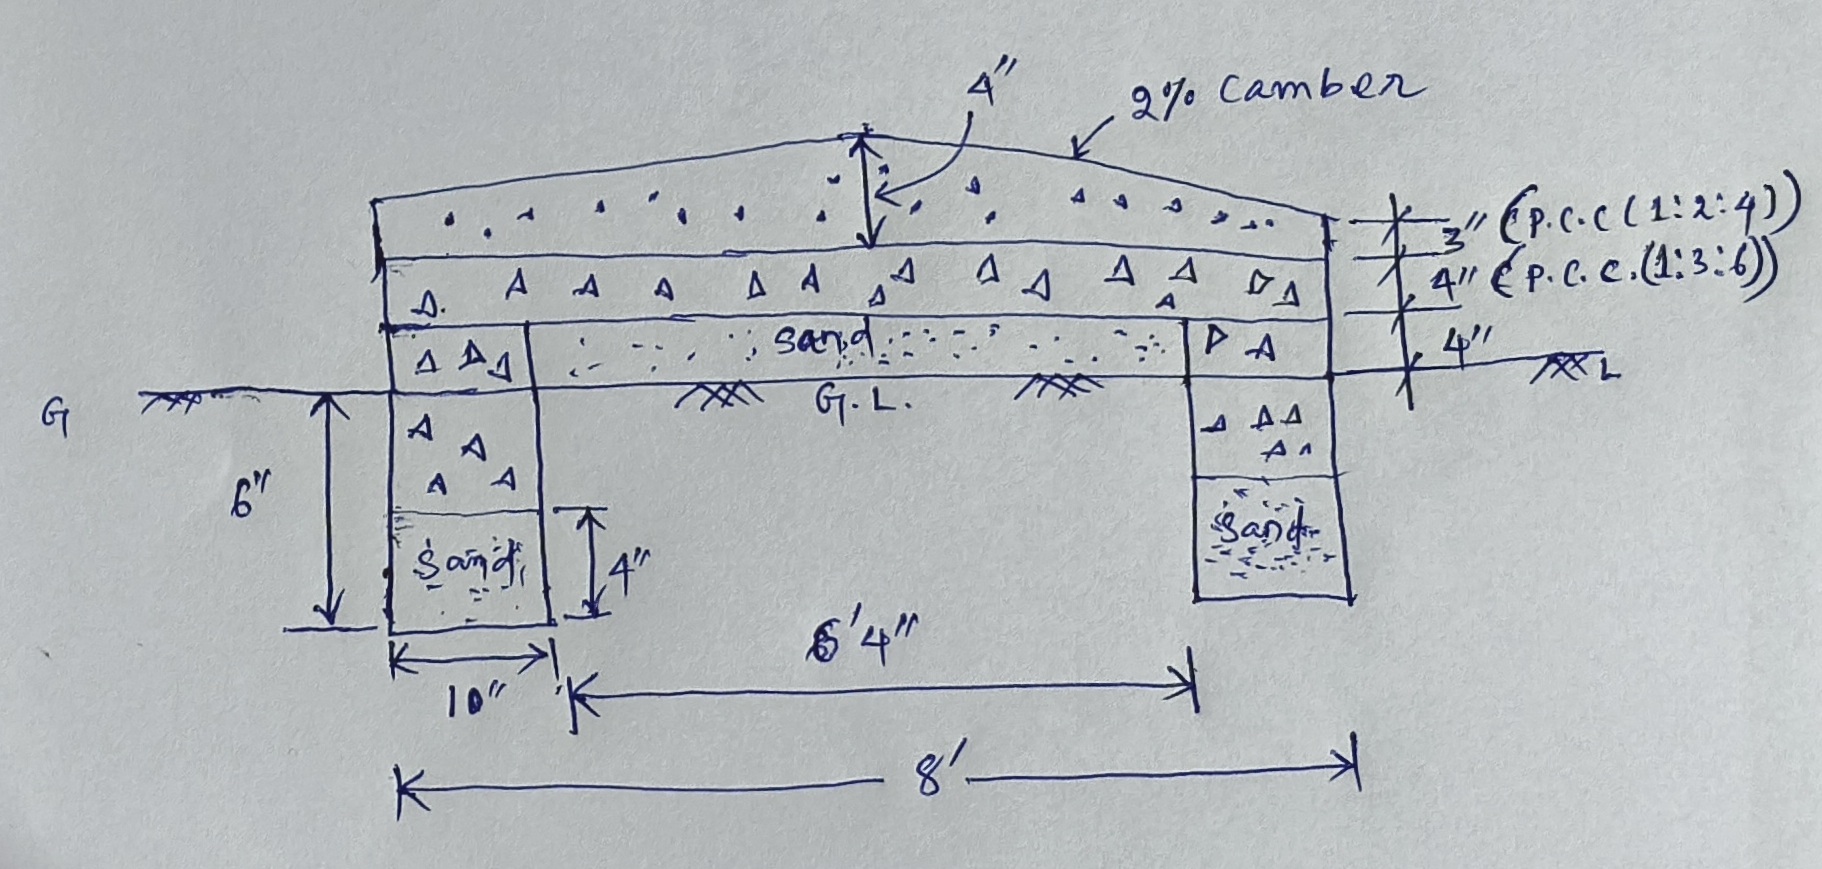 4"
2% camber
3" (P.C.C (1:2:4))
4" (P.C.C.(1:3:6))
sand
4"
G
G.L.
L
6"
sand
4"
sand
6'4"
10"
8'